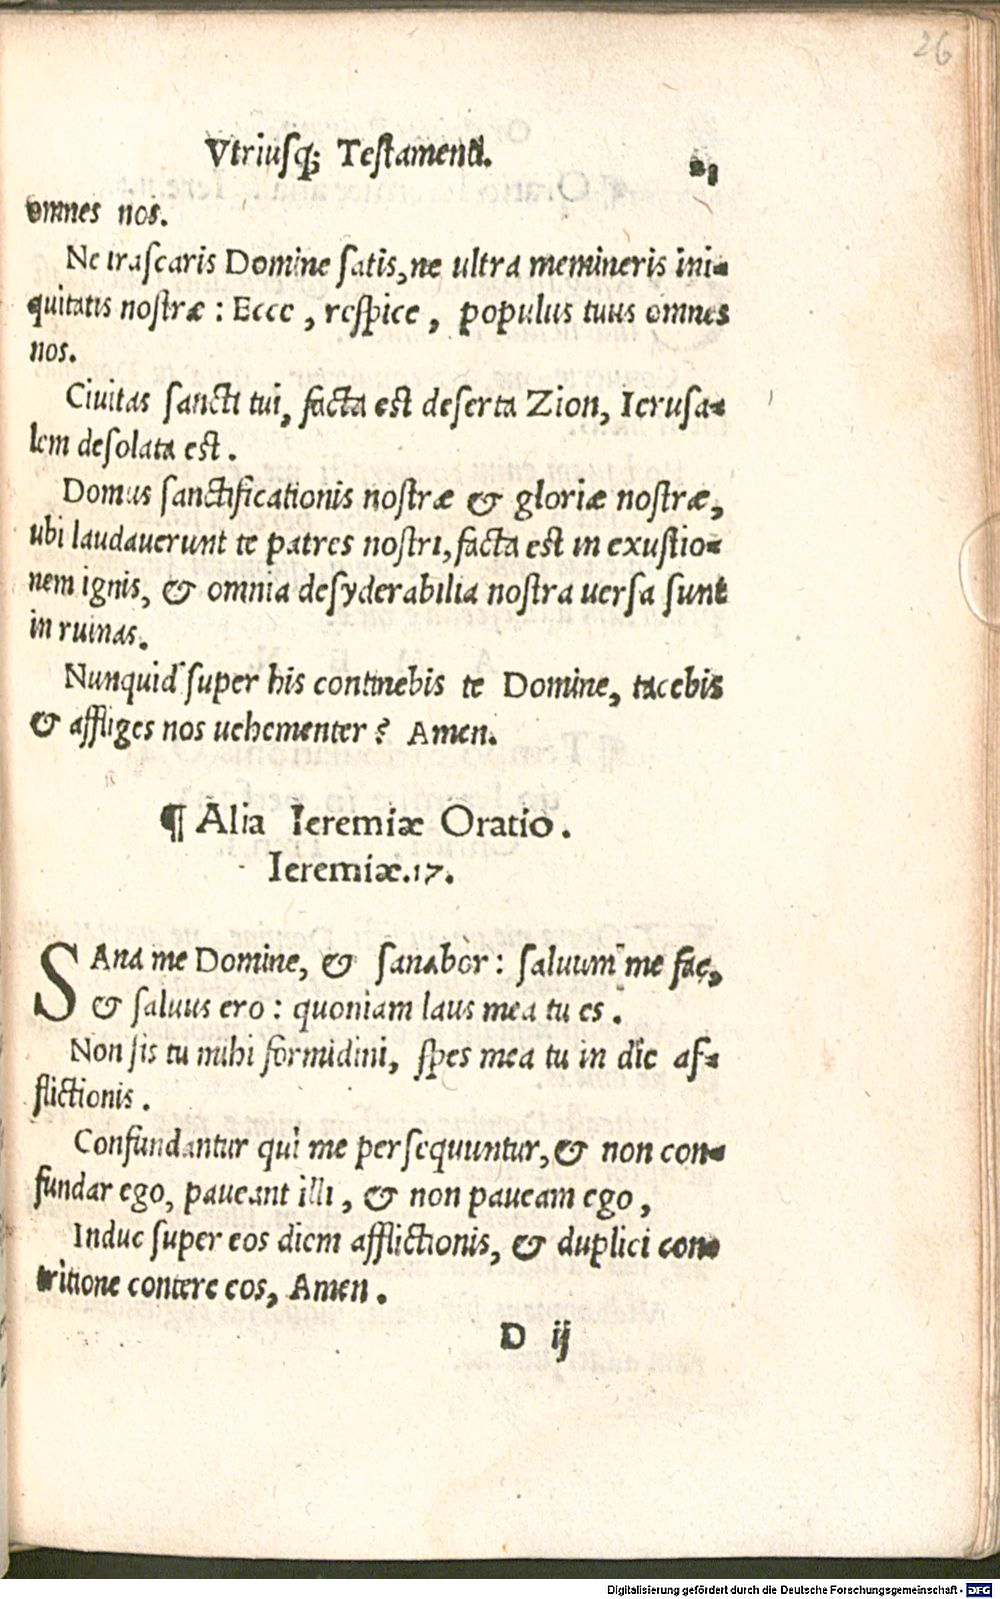 26
Vtriusq; Testamenti.
omnes nos.
Ne irascaris Domine satis, ne ultra memineris ini-
quitatis nostræ : Ecce , respice , populus tuus omnes
nos.
Ciuitas sancti tui, facta est deserta Zion, Ierusa-
lem desolata est .
Domus sanctificationis nostræ & gloriæ nostræ,
ubi laudauerunt te patres nostri, facta est in exustio-
nem ignis, & omnia desyderabilia nostra uersa sunt
in ruinas.
Nunquid super his continebis te Domine, tacebis
& affliges nos uehementer ? Amen.
¶ Alia Ieremiæ Oratio .
Ieremiæ.17.
SAna me Domine, & sanabor : saluum me fac,
& saluus ero : quoniam laus mea tu es .
Non sis tu mihi formidini, spes mea tu in die af-
flictionis .
Confundantur qui me persequuntur, & non con-
fundar ego, paueant illi , & non paueam ego ,
Induc super eos diem afflictionis, & duplici con-
tritione contere eos, Amen .
D ij
Digitalisierung gefördert durch die Deutsche Forschungsgemeinschaft - DFG